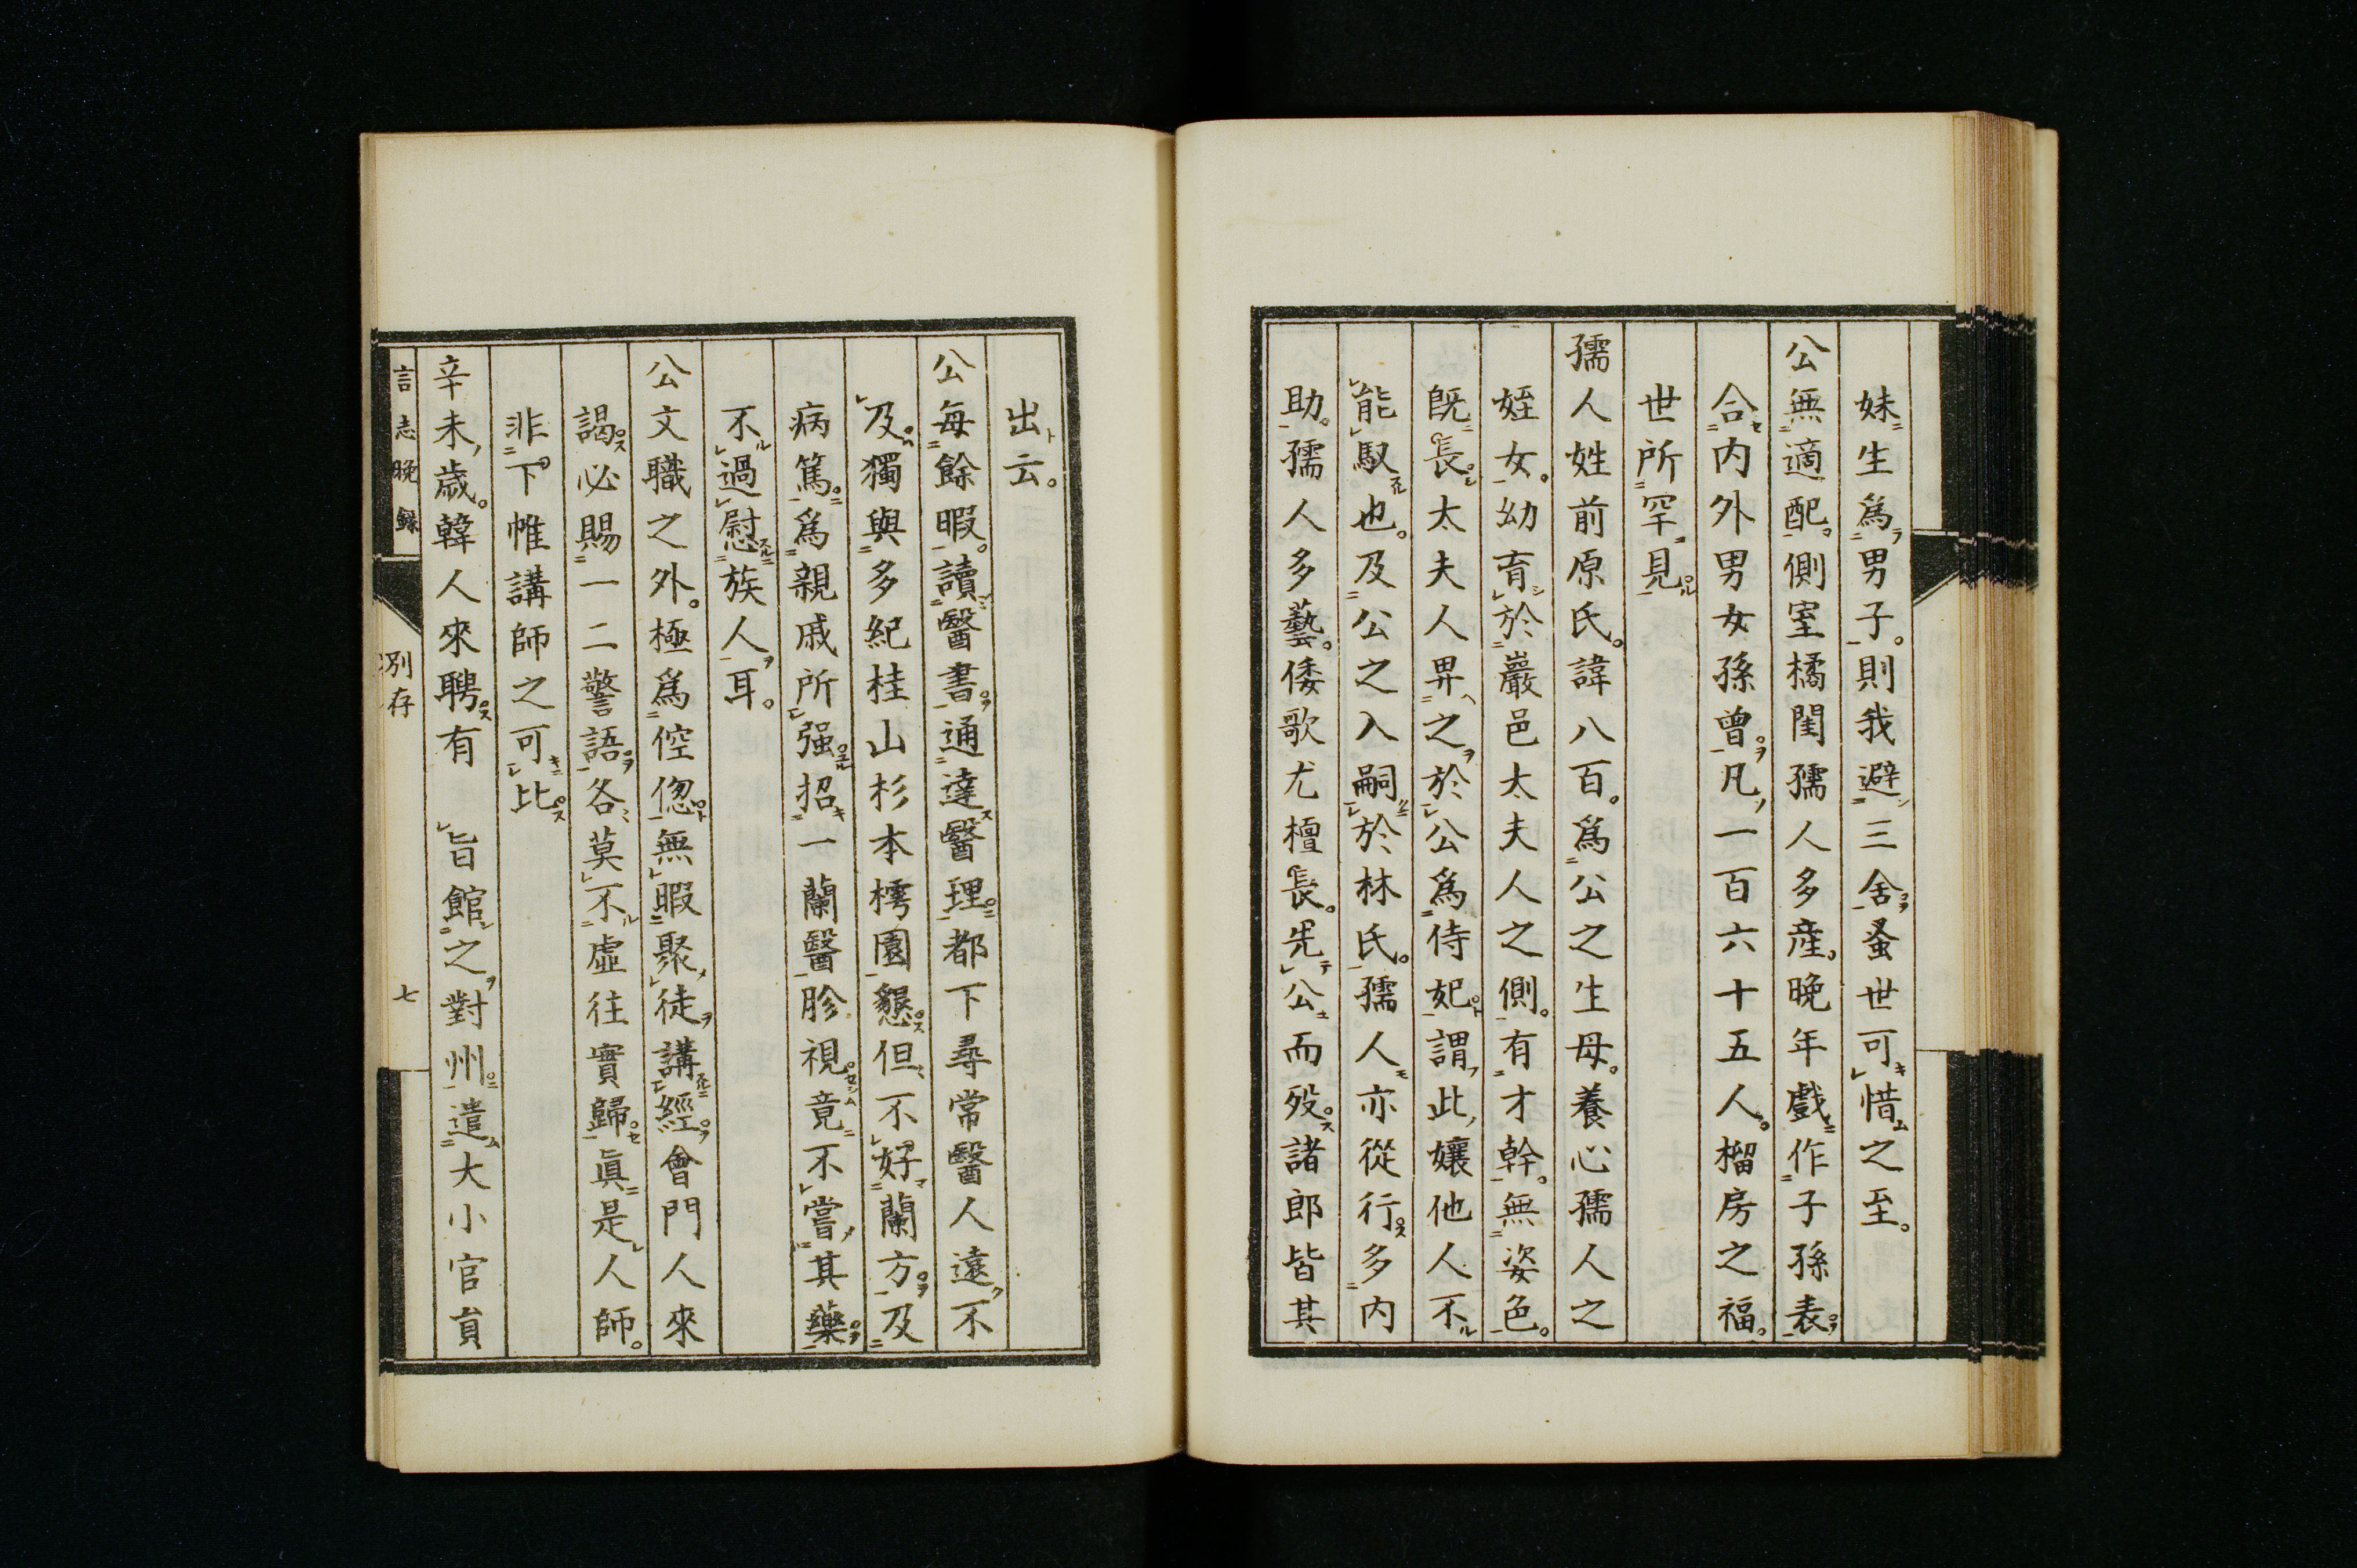 妹生爲男子。則我避三舍。蚤世可惜之至。
公無適配。側室橘閨孺人多産。晚年戲作子孫表。
合内外男女孫曾。凡一百六十五人。榴房之福。
世所罕見。
孺人姓前原氏。諱八百。爲公之生母。養心孺人之
姪女。幼育於巖邑太夫人之側。有才幹。無姿色。
既長。太夫人畀之於公爲侍妃。謂此孃他人不
能馭也。及公之入嗣於林氏。孺人亦從行。多内
助。孺人多藝。倭歌尤檀長。先公而歿。諸郎皆其
出云。
公每餘暇。讀醫書。通達醫理。都下尋常醫人遠不
及。獨與多紀桂山杉本樗園懇。但不好蘭方。及
病篤。爲親戚所强。招一蘭醫胗視。竟不嘗其藥。
不過慰族人耳。
公文職之外。極爲倥偬。無暇聚徒講經。會門人來
謁。必賜一二警語。各莫不虛往實歸。眞是人師。
非下帷講師之可比。
辛未歲。韓人來聘。有　旨館之對州。遣大小官員
言志晚錄
別存
七